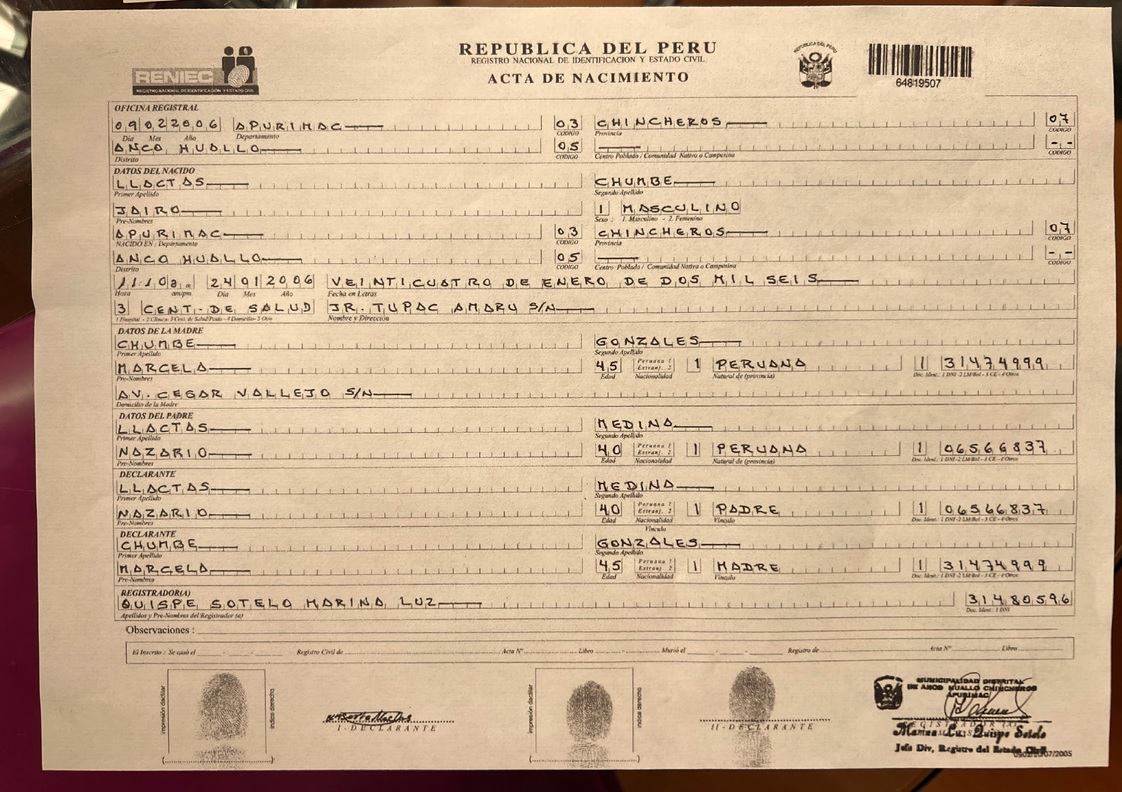 REPUBLICA DEL PERU
REGISTRO NACIONAL DE IDENTIFICACION Y ESTADO CIVIL
ACTA DE NACIMIENTO
RENIEC
REGISTRO NACIONAL DE IDENTIFICACION Y ESTADO CIVIL
REPUBLICA DEL PERU
64819507
OFICINA REGISTRAL
09022006 APURIMAC 03 CHINCHEROS 07
Día Mes Año Departamento CODIGO Provincia CODIGO
ANCO HUALLO 05 --
Distrito CODIGO Centro Poblado / Comunidad Nativa o Campesina CODIGO
DATOS DEL NACIDO
LLACTAS CHUMBE
Primer Apellido Segundo Apellido
JAIRO 1 MASCULINO
Pre-Nombres Sexo : 1. Masculino - 2. Femenino
APURIMAC 03 CHINCHEROS 07
NACIDO EN : Departamento CODIGO Provincia CODIGO
ANCO HUALLO 05 --
Distrito CODIGO Centro Poblado / Comunidad Nativa o Campesina CODIGO
1110 a.m 24012006 VEINTICUATRO DE ENERO DE DOS MIL SEIS
Hora am/pm. Día Mes Año Fecha en Letras
3 CENT. DE SALUD JR. TUPAC AMARU S/N
Nombre y Dirección
DATOS DE LA MADRE
CHUMBE GONZALES
Primer Apellido Segundo Apellido
MARCELA 45 Peruana 1 Extranj. 2 1 PERUANA 1 31474999
Pre-Nombres Edad Nacionalidad Natural de (provincia) Doc. Ident.: 1 DNI -2 LM/Bol - 3 CE - 4 Otros
AV. CESAR VALLEJO S/N
Domicilio de la Madre
DATOS DEL PADRE
LLACTAS MEDINA
Primer Apellido Segundo Apellido
NAZARIO 40 Peruana 1 Extranj. 2 1 PERUANA 1 06566837
Pre-Nombres Edad Nacionalidad Natural de (provincia) Doc. Ident.: 1 DNI -2 LM/Bol - 3 CE - 4 Otros
DECLARANTE
LLACTAS MEDINA
Primer Apellido Segundo Apellido
NAZARIO 40 Peruana 1 Extranj. 2 1 PADRE 1 06566837
Pre-Nombres Edad Nacionalidad Vínculo Doc. Ident.: 1 DNI -2 LM/Bol - 3 CE - 4 Otros
DECLARANTE Vínculo
CHUMBE GONZALES
Primer Apellido Segundo Apellido
MARCELA 45 Peruana 1 Extranj. 2 1 MADRE 1 31474999
Pre-Nombres Edad Nacionalidad Vínculo Doc. Ident.: 1 DNI -2 LM/Bol - 3 CE - 4 Otros
REGISTRADOR(A)
QUISPE SOTELO MARINA LUZ 31480596
Apellidos y Pre-Nombres del Registrador (a) Doc. Ident.: 1 DNI
Observaciones :
El Inscrito : Se casó el Registro Civil de Acta N° Libro Murió el Registro de Acta N° Libro
impresión dactilar índice derecho
I - DECLARANTE
impresión dactilar índice derecho
II - DECLARANTE
MUNICIPALIDAD DISTRITAL
DE ANCO HUALLO CHINCHEROS
APURIMAC
Marina Luz Quispe Sotelo
Jefe Div, Registro del Estado Civil